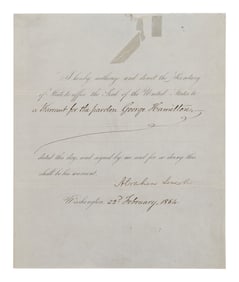 I hereby authorize and direct the Secretary
of State to affix the Seal of the United States to
a Warrant for the pardon George Hamilton,
dated this day, and signed by me and for so doing this
shall be his warrant.
Abraham Lincoln
Washington, 22d February, 1864